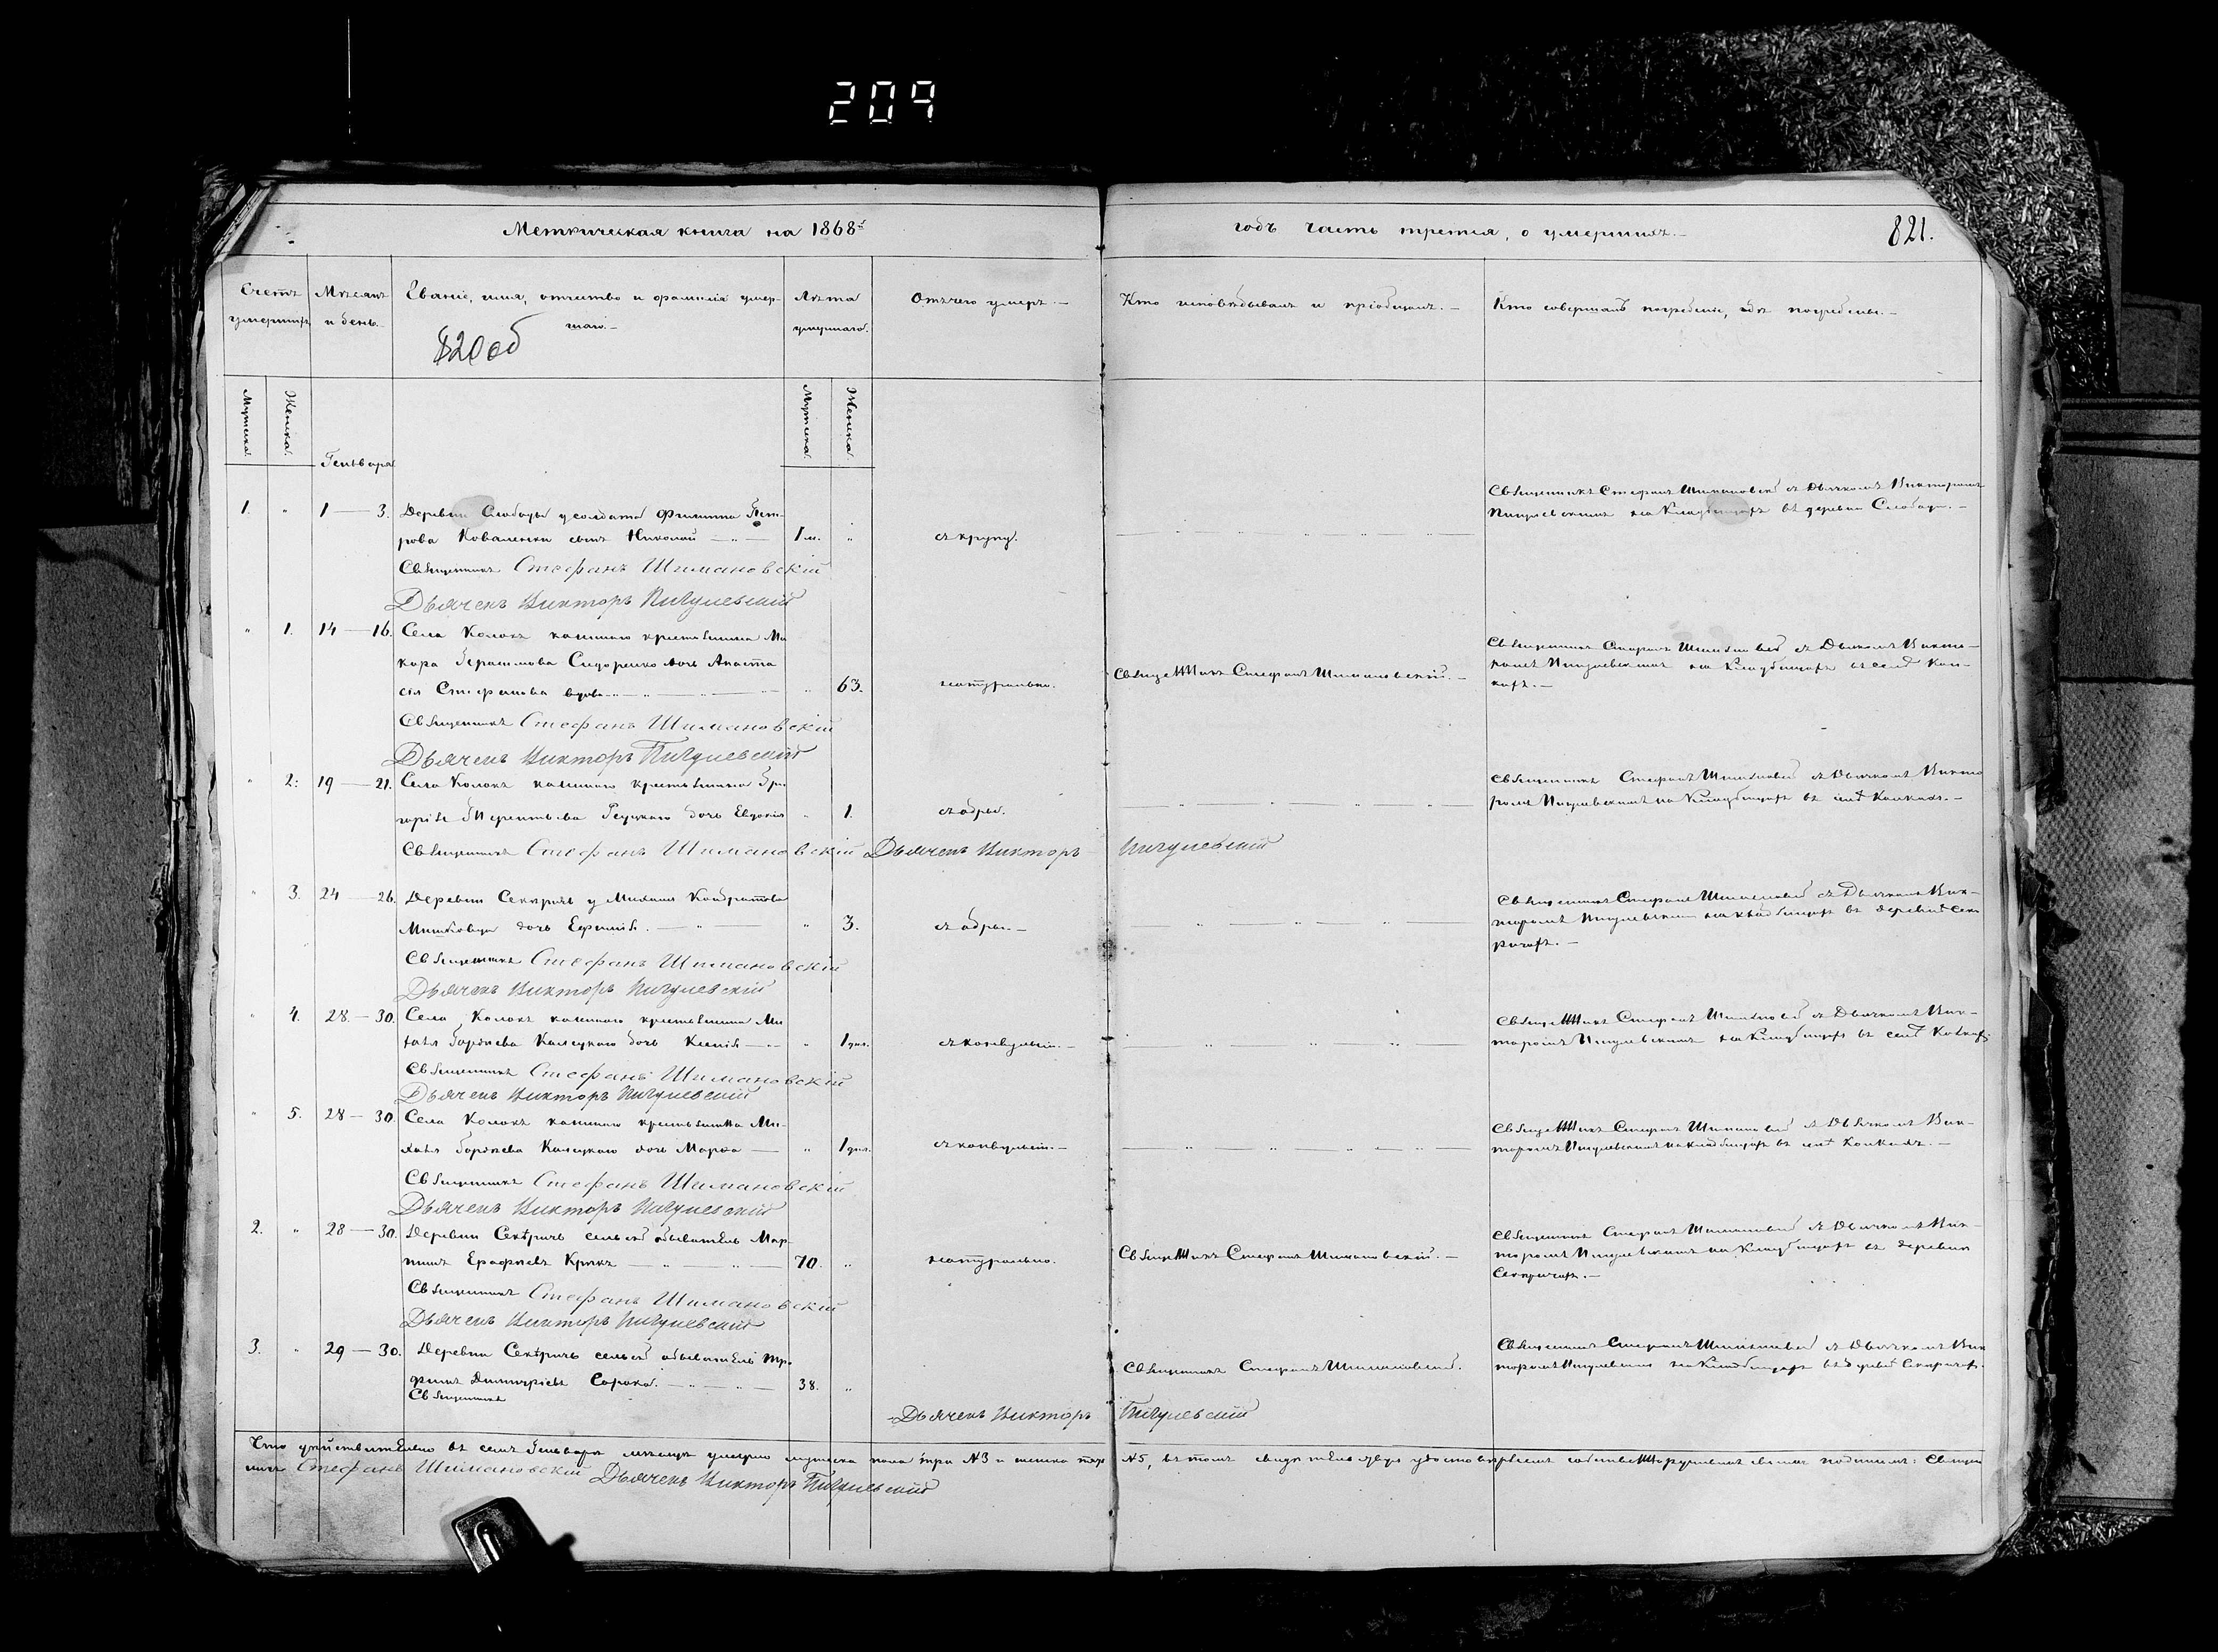 209
Метрическая книга на 1868й
годъ часть третія, о умершихъ.
821.
Счетъ умершихъ
Мѣсяцъ и день
Званіе, имя, отчество и фамилія умер-
шаго.
820об
Лѣта умершаго.
Отъ чего умеръ.
Кто исповѣдывалъ и пріобщалъ.
Кто совершалъ погребеніе, гдѣ погребены.
Мужеска.
Женска.
Генваря
Мужеска.
Женска.
1. " 1 — 3. Деревни Слободы у солдата Филиппа Пет-
рова Коваленки сынъ Николай 1 м. " съ крупу.
Священникъ Стефанъ Шимановскій съ Дьячкомъ Викторомъ
Пигулевскимъ на кладбищѣ въ деревни Слободѣ.
Священникъ Стефанъ Шимановскій
Дьячекъ Викторъ Пигулевскій
" 1. 14 — 16. Села Колокъ казеннаго крестьянина Ма
кара Герасимова Сидоренко дочь Анаста
сія Стефанова вдова " 63. натурально.
Священникъ Стефанъ Шимановскій.
Священникъ Стефанъ Шимановскій съ Дьячкомъ Викто-
ромъ Пигулевскимъ на кладбищѣ въ селѣ Кол-
кахъ.
Священникъ Стефанъ Шимановскій
Дьячекъ Викторъ Пигулевскій
" 2. 19 — 21. Села Колокъ казеннаго крестьянина Гри-
горія дочь Евдокія " 1. съ обры.
Священникъ Стефанъ Шимановскій съ Дьячкомъ Викто
ромъ Пигулевскимъ на кладбищѣ въ селѣ Колкахъ.
Священникъ Стефанъ Шимановскій Дьячекъ Викторъ Пигулевскій
" 3. 24 — 26. Деревни Секиричъ у Михаила Кондратова
дочь Ефимія. " 3. съ обры.
Священникъ Стефанъ Шимановскій съ Дьячкомъ Вик-
торомъ Пигулевскимъ на кладбищѣ въ деревнѣ Секи
ричахъ.
Священникъ Стефанъ Шимановскій
Дьячекъ Викторъ Пигулевскій
" 4. 28. — 30. Села Колокъ казеннаго крестьянина Ми
хаила дочь Ксенія " 1 дня. съ конвульсіи.
Священникъ Стефанъ Шимановскій съ Дьячкомъ Вик-
торомъ Пигулевскимъ на кладбищѣ въ селѣ Колкахъ.
Священникъ Стефанъ Шимановскій
Дьячекъ Викторъ Пигулевскій
" 5. 28 — 30. Села Колокъ казеннаго крестьянина Ми-
хаила дочь Марѳа " 1 дня. съ конвульсіи.
Священникъ Стефанъ Шимановскій съ Дьячкомъ Вик-
торомъ Пигулевскимъ на кладбищѣ въ селѣ Колкахъ.
Священникъ Стефанъ Шимановскій
Дьячекъ Викторъ Пигулевскій
2. " 28 — 30. Деревни Секиричъ сельскій обыватель Мар-
тинъ Крукъ 70. " натурально.
Священникъ Стефанъ Шимановскій.
Священникъ Стефанъ Шимановскій съ Дьячкомъ Вик-
торомъ Пигулевскимъ на кладбищѣ въ деревни
Секиричахъ.
Священникъ Стефанъ Шимановскій
Дьячекъ Викторъ Пигулевскій
3. " 29 — 30. Деревни Секиричъ сельскій обыватель Тро-
фимъ Димитріевъ Сорока. 38. "
Священникъ Стефанъ Шимановскій.
Священникъ Стефанъ Шимановскій съ Дьячкомъ Вик
торомъ Пигулевскимъ на кладбищѣ въ деревнѣ Секиричахъ.
Священникъ
Дьячекъ Викторъ Пигулевскій
Что дѣйствительно въ семъ Генварѣ мѣсяцѣ умерло мужеска пола три №3 и женска №5, въ томъ подписомъ: Священ
никъ Стефанъ Шимановскій Дьячекъ Викторъ Пигулевскій